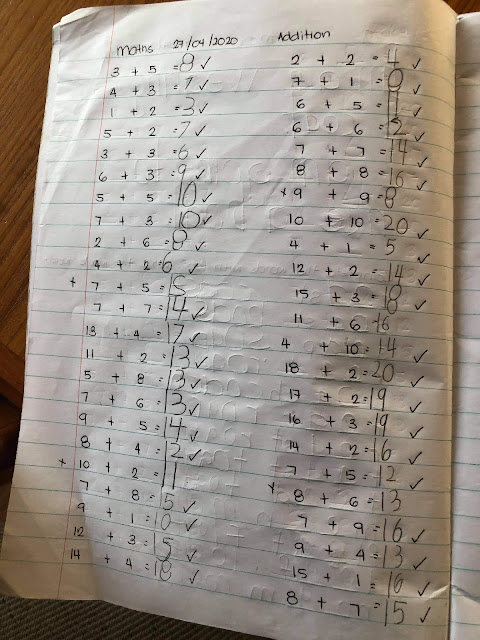 Maths 27/04/2020
3 + 5 = 8 ✓
4 + 3 = 7 ✓
1 + 2 = 3 ✓
5 + 2 = 7 ✓
3 + 3 = 6 ✓
6 + 3 = 9 ✓
5 + 5 = 10 ✓
7 + 3 = 10 ✓
2 + 6 = 8 ✓
4 + 2 = 6 ✓
x 7 + 5 = 15
7 + 7 = 14 ✓
13 + 4 = 17 ✓
11 + 2 = 13 ✓
5 + 8 = 13 ✓
7 + 6 = 13 ✓
9 + 5 = 14 ✓
8 + 4 = 12 ✓
x 10 + 2 = 11
7 + 8 = 15 ✓
9 + 1 = 10 ✓
12 + 3 = 15 ✓
14 + 4 = 18 ✓
Addition
2 + 2 = 4 ✓
7 + 1 = 8 ✓
6 + 5 = 11 ✓
6 + 6 = 12 ✓
7 + 7 = 14 ✓
8 + 8 = 16 ✓
x 9 + 9 = 8
10 + 10 = 20 ✓
4 + 1 = 5 ✓
12 + 2 = 14 ✓
15 + 3 = 18 ✓
11 + 6 = 16
4 + 10 = 14 ✓
18 + 2 = 20 ✓
17 + 2 = 19 ✓
16 + 3 = 19 ✓
14 + 2 = 16 ✓
7 + 5 = 12 ✓
x 8 + 6 = 13
7 + 9 = 16 ✓
9 + 4 = 13 ✓
15 + 1 = 16 ✓
8 + 7 = 15 ✓